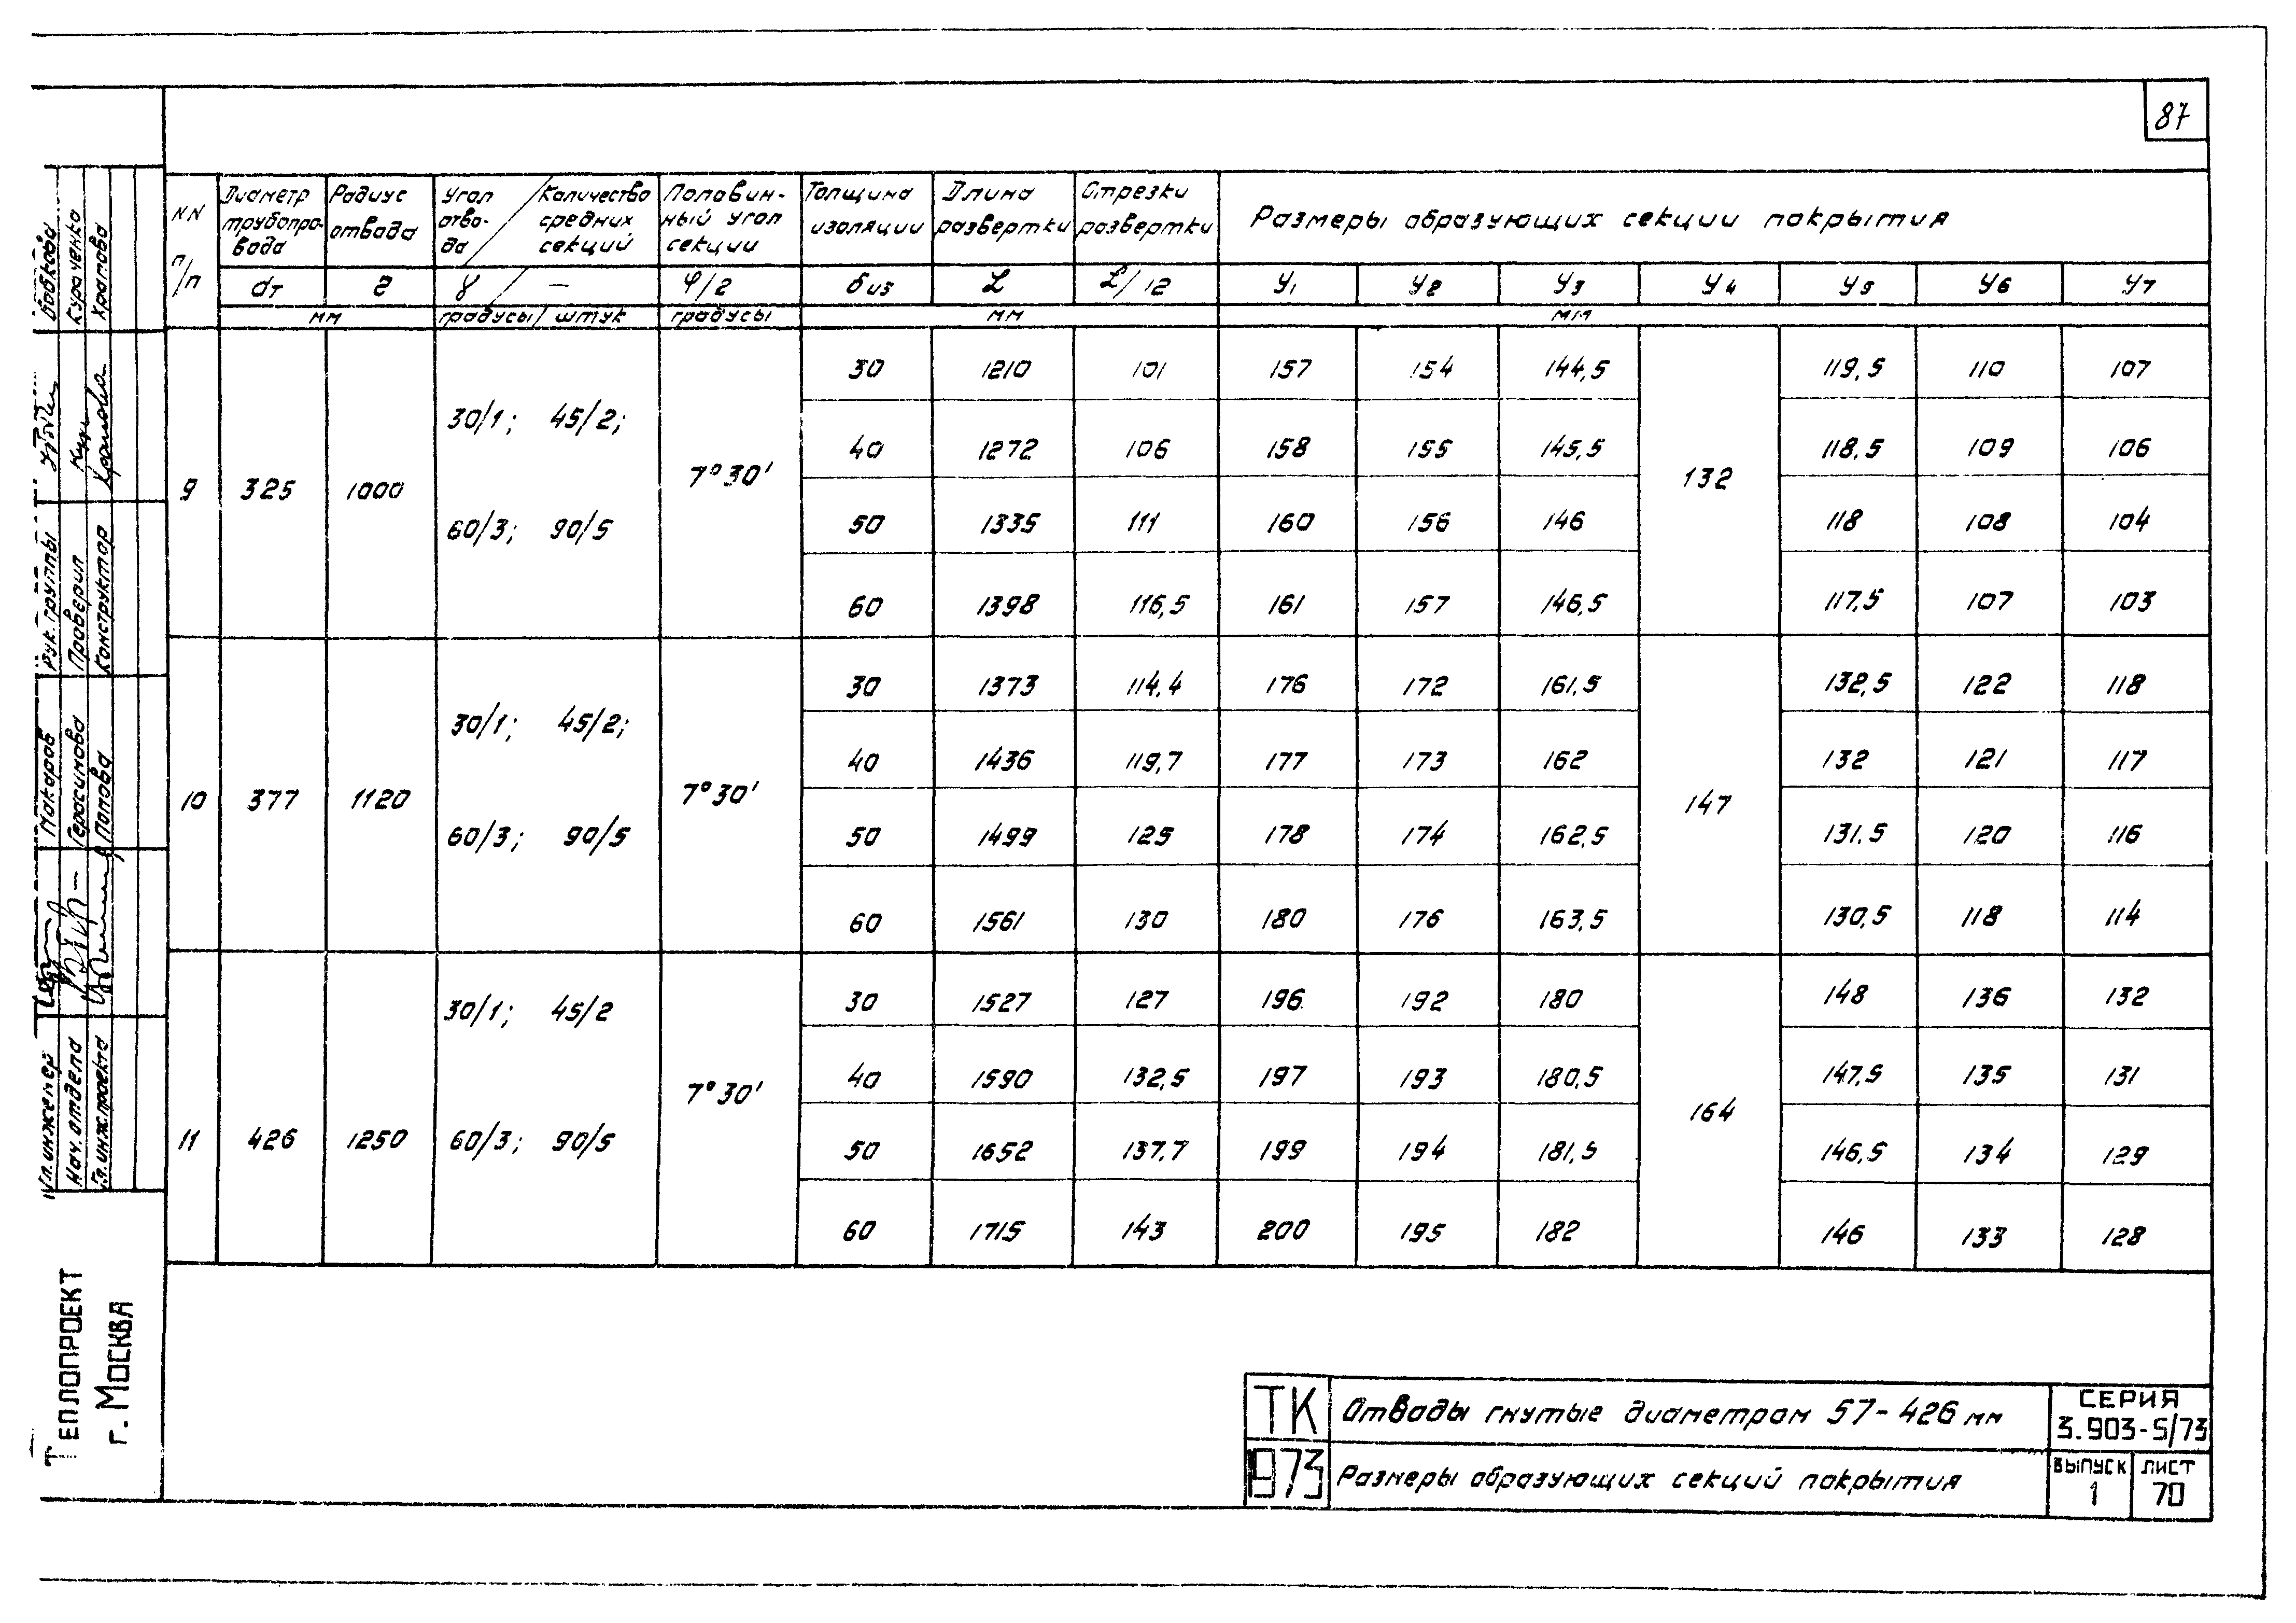 87
NN п/п | Диаметр трубопровода | Радиус отвода | Угол отвода / Количество средних секций | Половинный угол секции | Толщина изоляции | Длина развертки | Отрезки развертки | Размеры образующих секции покрытия
dт | r | γ / — | φ/2 | δиз | L | L/12 | У1 | У2 | У3 | У4 | У5 | У6 | У7
мм | градусы / штук | градусы | мм | мм
9 | 325 | 1000 | 30/1; 45/2; 60/3; 90/5 | 7°30' | 30 | 1210 | 101 | 157 | 154 | 144,5 | 132 | 119,5 | 110 | 107
40 | 1272 | 106 | 158 | 155 | 145,5 | 118,5 | 109 | 106
50 | 1335 | 111 | 160 | 156 | 146 | 118 | 108 | 104
60 | 1398 | 116,5 | 161 | 157 | 146,5 | 117,5 | 107 | 103
10 | 377 | 1120 | 30/1; 45/2; 60/3; 90/5 | 7°30' | 30 | 1373 | 114,4 | 176 | 172 | 161,5 | 147 | 132,5 | 122 | 118
40 | 1436 | 119,7 | 177 | 173 | 162 | 132 | 121 | 117
50 | 1499 | 125 | 178 | 174 | 162,5 | 131,5 | 120 | 116
60 | 1561 | 130 | 180 | 176 | 163,5 | 130,5 | 118 | 114
11 | 426 | 1250 | 30/1; 45/2 60/3; 90/5 | 7°30' | 30 | 1527 | 127 | 196 | 192 | 180 | 164 | 148 | 136 | 132
40 | 1590 | 132,5 | 197 | 193 | 180,5 | 147,5 | 135 | 131
50 | 1652 | 137,7 | 199 | 194 | 181,5 | 146,5 | 134 | 129
60 | 1715 | 143 | 200 | 195 | 182 | 146 | 133 | 128
Гл. инженер Макаров Рук. группы
Нач. отдела Герасимова Проверил Кураченко
Гл. инж. проекта Попова Конструктор Кратова
Теплопроект
г. Москва
ТК
1973
Отводы гнутые диаметром 57-426 мм
Размеры образующих секций покрытия
СЕРИЯ
3.903-5/73
ВЫПУСК
1
ЛИСТ
70